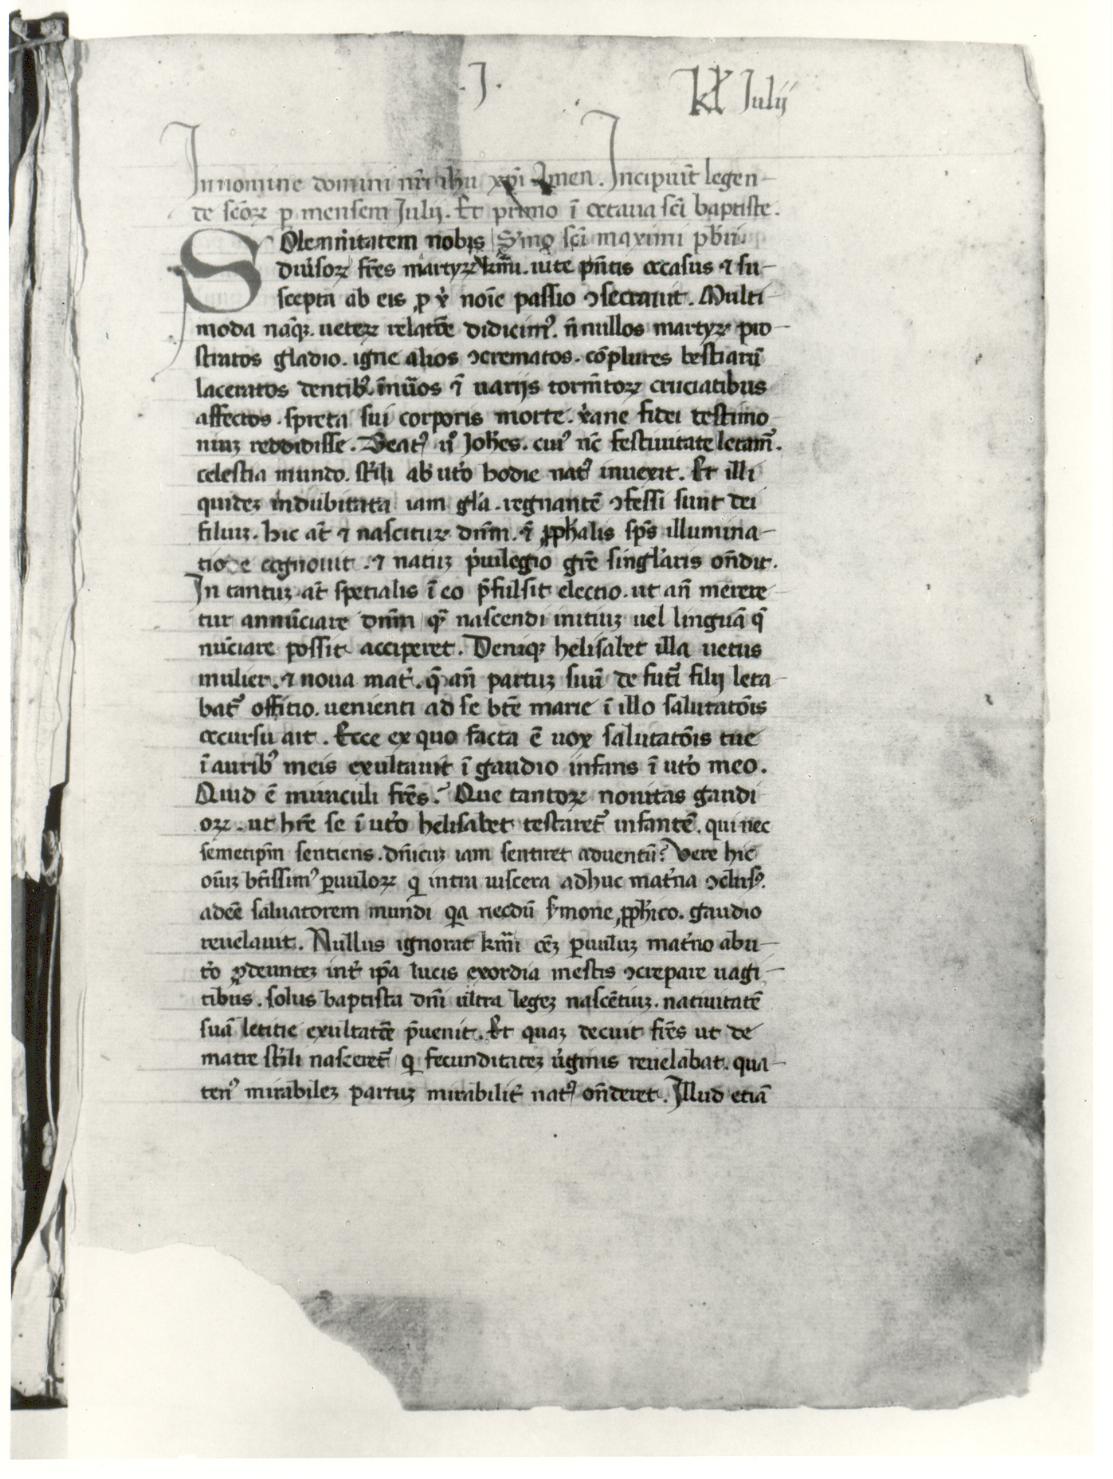 .J.
kl Julij
In nomine domini nri ihu xpi Amen. Incipiut legen-
de scoꝝ p mensem Julij. Et primo ī octaua sci baptiste.
SOlemnitatem nobis Smo sci maximi
diuīsoꝝ frēs martyrꝝ kmī. iute pn̄tis occasus ⁊ su-
scepta ab eis ꝓ noīe passio ꝯsecrauit. Multi-
moda naqꝫ. ueteꝝ relatōe didicimꝰ. n̄nullos martyrꝝ pro-
stratos gladio. igne alios ꝯcrematos. cōplures bestiarū
laceratos dentibꝰ. ī uarijs tormētoꝝ cruciatibus
affectos. spreta sui corporis morte. xane fidei testimo
niuꝫ reddidisse. Beatꝰ u° Joh̄es. cuiꝰ nc̄ festiuitate letamꝰ.
celestia mundo. st'ili ab ut'o hodie natꝰ inuexit. Et illi
quidez indubitata iam gl'a. regnantē ꝯfessi sunt dei
filiuꝫ. hic at̄ ⁊ nascituꝝ dnm̄. ꝓph'alis sps̄ illumina-
tione cognouit. ⁊ natuꝫ p'uilegio gr̄e singl'aris on̄dit.
In tantuꝫ at̄ spetialis ī eo p̄fulsit electio. ut an̄ merere
tur annūciare dnm̄ qꝫ nascendi initiuꝫ uel linguā q̄
nūciare possit acciperet. Deniqꝫ helisabet illa uetus
mulier. ⁊ noua mat'. q̄ an̄ partuꝫ suū de fut'i filij leta
batꝰ offitio. uenienti ad se bt̄e marie ī illo salutatōis
occursu ait. Ecce ex quo facta ē uox salutatōis tue
ī auribꝰ meis exultauit ī gaudio infans ī ut'o meo.
Quid ē miraculi frēs? Que tantoꝝ nouitas gaudi
oꝝ. ut hr̄e se ī ut'o helisabet testaretꝰ infantē. qui nec
semetip̄m sentiens. dn̄icuꝫ iam sentiret aduentū? Vere hic
oīuꝫ bt̄issimꝰ ꝑuuloꝝ q intra uiscera adhuc mat'na ꝯclusꝰ.
adeē saluatorem mundi qa necdū s'mone ꝓph'ico. gaudio
reuelauit. Nullus ignorat kmī oēꝫ ꝑuuluꝫ mat'no abu-
t'o ꝓdeuntez int' ip̄a lucis exordia mestis ꝯcrepare uagi-
tibus. solus baptista dn̄i ultra legeꝫ nascētiuꝫ. natiuitatē
suā letitie exultatōe p̄uenit. Et quaꝫ decuit frēs ut de
matre st'ili nasceretꝰ q fecunditateꝫ u'ginis reuelabat. qua-
tenꝰ mirabileꝫ partuꝫ mirabilit' natꝰ on̄deret. Illud etiā